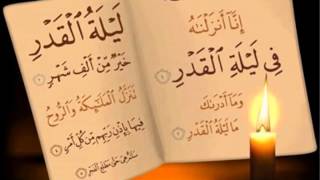 إِنَّا أَنزَلْنَاهُ
فِي لَيْلَةِ الْقَدْرِ ١
وَمَا أَدْرَاكَ
مَا لَيْلَةُ الْقَدْرِ ٢
لَيْلَةُ الْقَدْرِ
خَيْرٌ مِّنْ أَلْفِ شَهْرٍ ٣
تَنَزَّلُ الْمَلَائِكَةُ وَالرُّوحُ
فِيهَا بِإِذْنِ رَبِّهِم مِّن كُلِّ أَمْرٍ ٤
سَلَامٌ هِيَ حَتَّى مَطْلَعِ الْفَجْرِ ٥